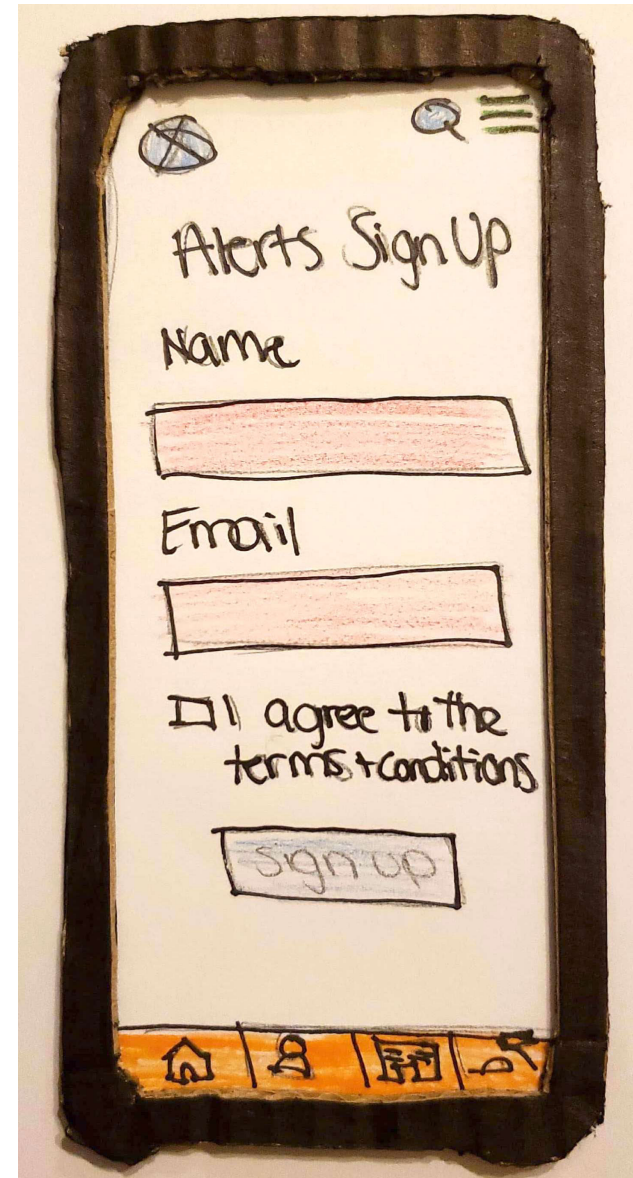 Alerts Sign Up
Name
Email
I agree to the
terms + conditions
sign up